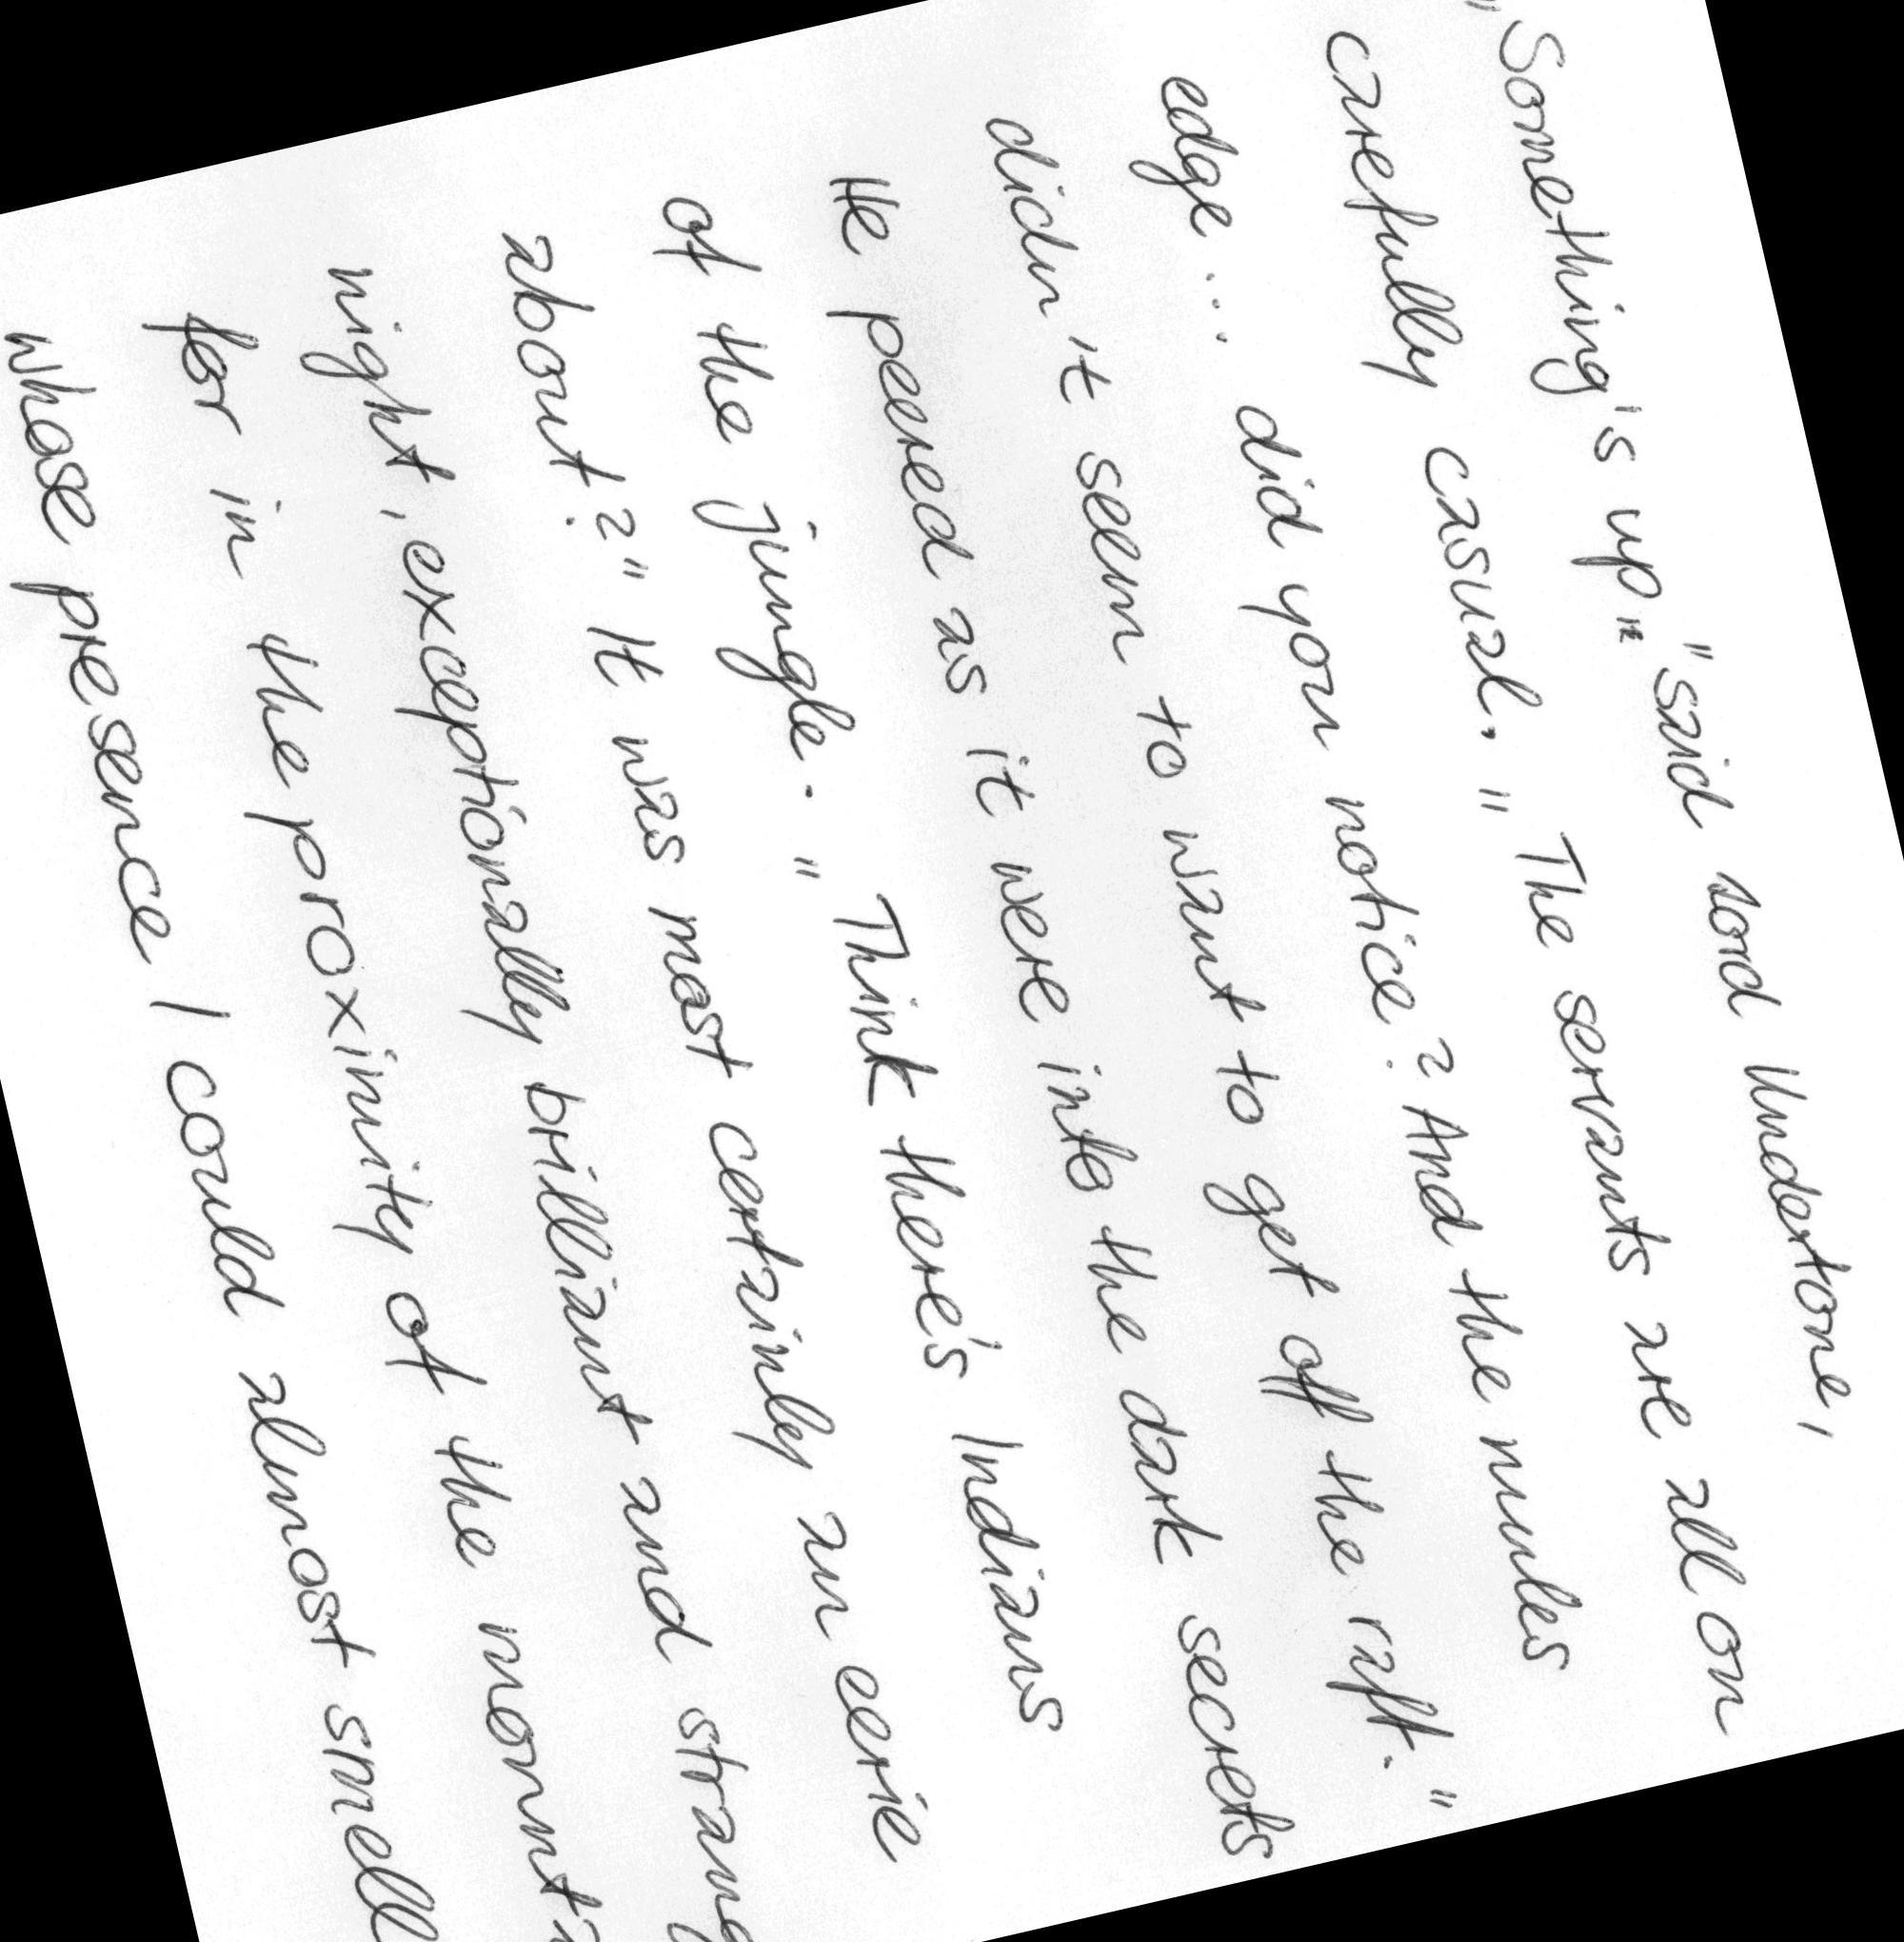 "Something's up" "said Lord Undertone,
carefully casual. "The servants are all on
edge... did you notice? And the mules
didn't seem to want to get off the raft."
He peered as it were into the dark secrets
of the jungle. "Think there's Indians
about?" It was most certainly an eerie
night, exceptionally brilliant and
for in the proximity of the
whose presence I could almost smell